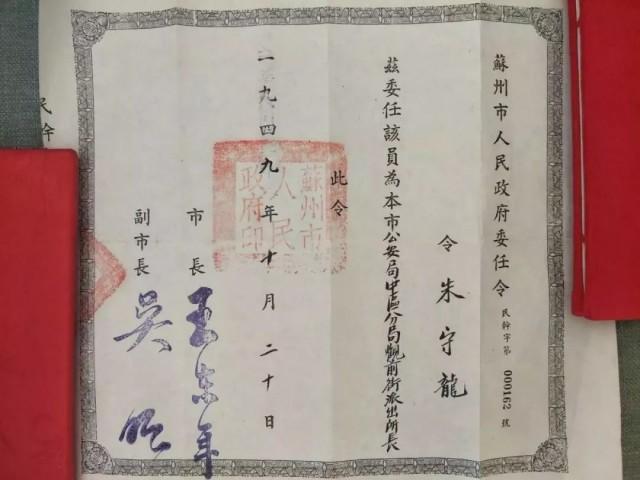 蘇州市人民政府委任令
民幹字第000162號
令朱守龍
茲委任該員為本市公安局中區分局觀前街派出所長
此令
蘇州市人民政府印
市長
副市長 吳
一九四九年十月二十日
民幹